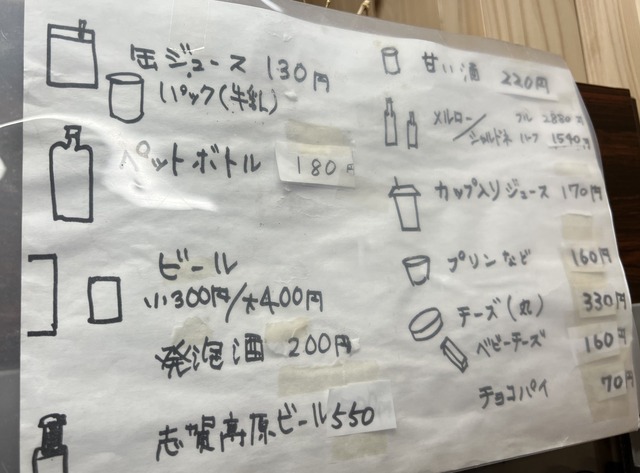 缶ジュース 130円
パック(牛乳)
ペットボトル 180円
ビール
小300円/大400円
発泡酒 200円
志賀高原ビール 550
甘い酒 220円
メルロー/ フル 2880円
シャルドネ ハーフ 1540円
カップ入りジュース 170円
プリンなど 160円
チーズ(丸) 330円
ベビーチーズ 160円
チョコパイ 70円